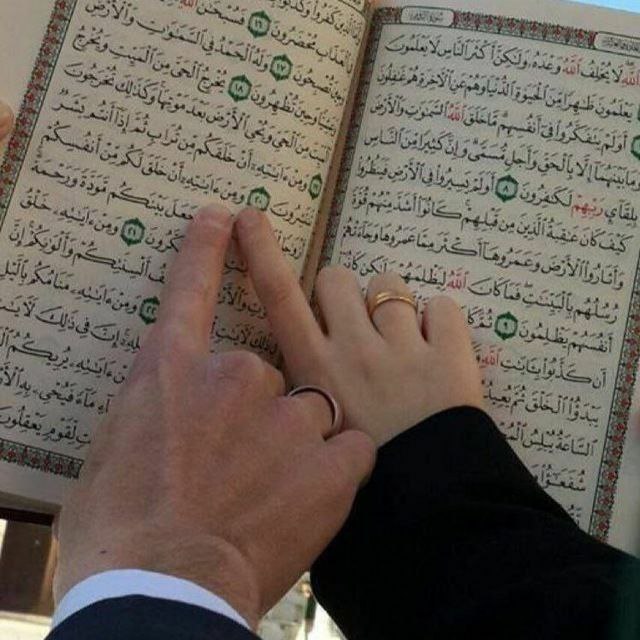 الله لَا يُخْلِفُ اللَّهُ وَعْدَهُ وَلَٰكِنَّ أَكْثَرَ النَّاسِ لَا يَعْلَمُونَ
يَعْلَمُونَ ظَاهِرًا مِنَ الْحَيَوٰةِ الدُّنْيَا وَهُمْ عَنِ الْآخِرَةِ هُمْ غَافِلُونَ
أَوَلَمْ يَتَفَكَّرُوا فِي أَنْفُسِهِمْ مَا خَلَقَ اللَّهُ السَّمَوَاتِ وَالْأَرْضَ
وَمَا بَيْنَهُمَا إِلَّا بِالْحَقِّ وَأَجَلٍ مُسَمًّى وَإِنَّ كَثِيرًا مِنَ النَّاسِ
بِلِقَايِ رَبِّهِمْ لَكَافِرُونَ ٨ أَوَلَمْ يَسِيرُوا فِي الْأَرْضِ فَيَنْظُرُوا
كَيْفَ كَانَ عَاقِبَةُ الَّذِينَ مِنْ قَبْلِهِمْ كَانُوا أَشَدَّ مِنْهُمْ قُوَّةً
وَأَثَارُوا الْأَرْضَ وَعَمَرُوهَا أَكْثَرَ مِمَّا عَمَرُوهَا وَجَاءَتْهُمْ
رُسُلُهُمْ بِالْبَيِّنَاتِ فَمَا كَانَ اللَّهُ لِيَظْلِمَهُمْ وَلَٰكِنْ كَانُوا
أَنْفُسَهُمْ يَظْلِمُونَ ٩ ثُمَّ
أَنْ كَذَّبُوا بِآيَاتِ اللَّهِ
يَبْدَؤُا الْخَلْقَ ثُمَّ
السَّاعَةُ يُبْلِسُ
شُفَعَاؤُا
كَفَرُوا وَكَذَّبُوا
الْعَذَابِ مُحْضَرُونَ ١٦ فَسُبْحَانَ
تُصْبِحُونَ ١٧ وَلَهُ الْحَمْدُ فِي السَّمَوَاتِ وَالْأَرْضِ
وَعَشِيًّا وَحِينَ تُظْهِرُونَ ١٨ يُخْرِجُ الْحَيَّ مِنَ الْمَيِّتِ وَيُخْرِجُ
الْمَيِّتَ مِنَ الْحَيِّ وَيُحْيِ الْأَرْضَ بَعْدَ مَوْتِهَا وَكَذَٰلِكَ تُخْرَجُونَ
١٩ وَمِنْ آيَاتِهِ أَنْ خَلَقَكُمْ مِنْ تُرَابٍ ثُمَّ إِذَا أَنْتُمْ بَشَرٌ
تَنْتَشِرُونَ ٢٠ وَمِنْ آيَاتِهِ أَنْ خَلَقَ لَكُمْ مِنْ أَنْفُسِكُمْ
وَجَعَلَ بَيْنَكُمْ مَوَدَّةً وَرَحْمَةً
٢١ وَمِنْ آيَاتِهِ خَلْقُ
أَلْسِنَتِكُمْ وَأَلْوَانِكُمْ إِنَّ
٢٢ وَمِنْ آيَاتِهِ مَنَامُكُمْ بِاللَّيْلِ
إِنَّ فِي ذَٰلِكَ لَآيَاتٍ
وَمِنْ آيَاتِهِ يُرِيكُمُ
مَاءً فَيُحْيِ بِهِ
لِقَوْمٍ يَعْقِلُونَ